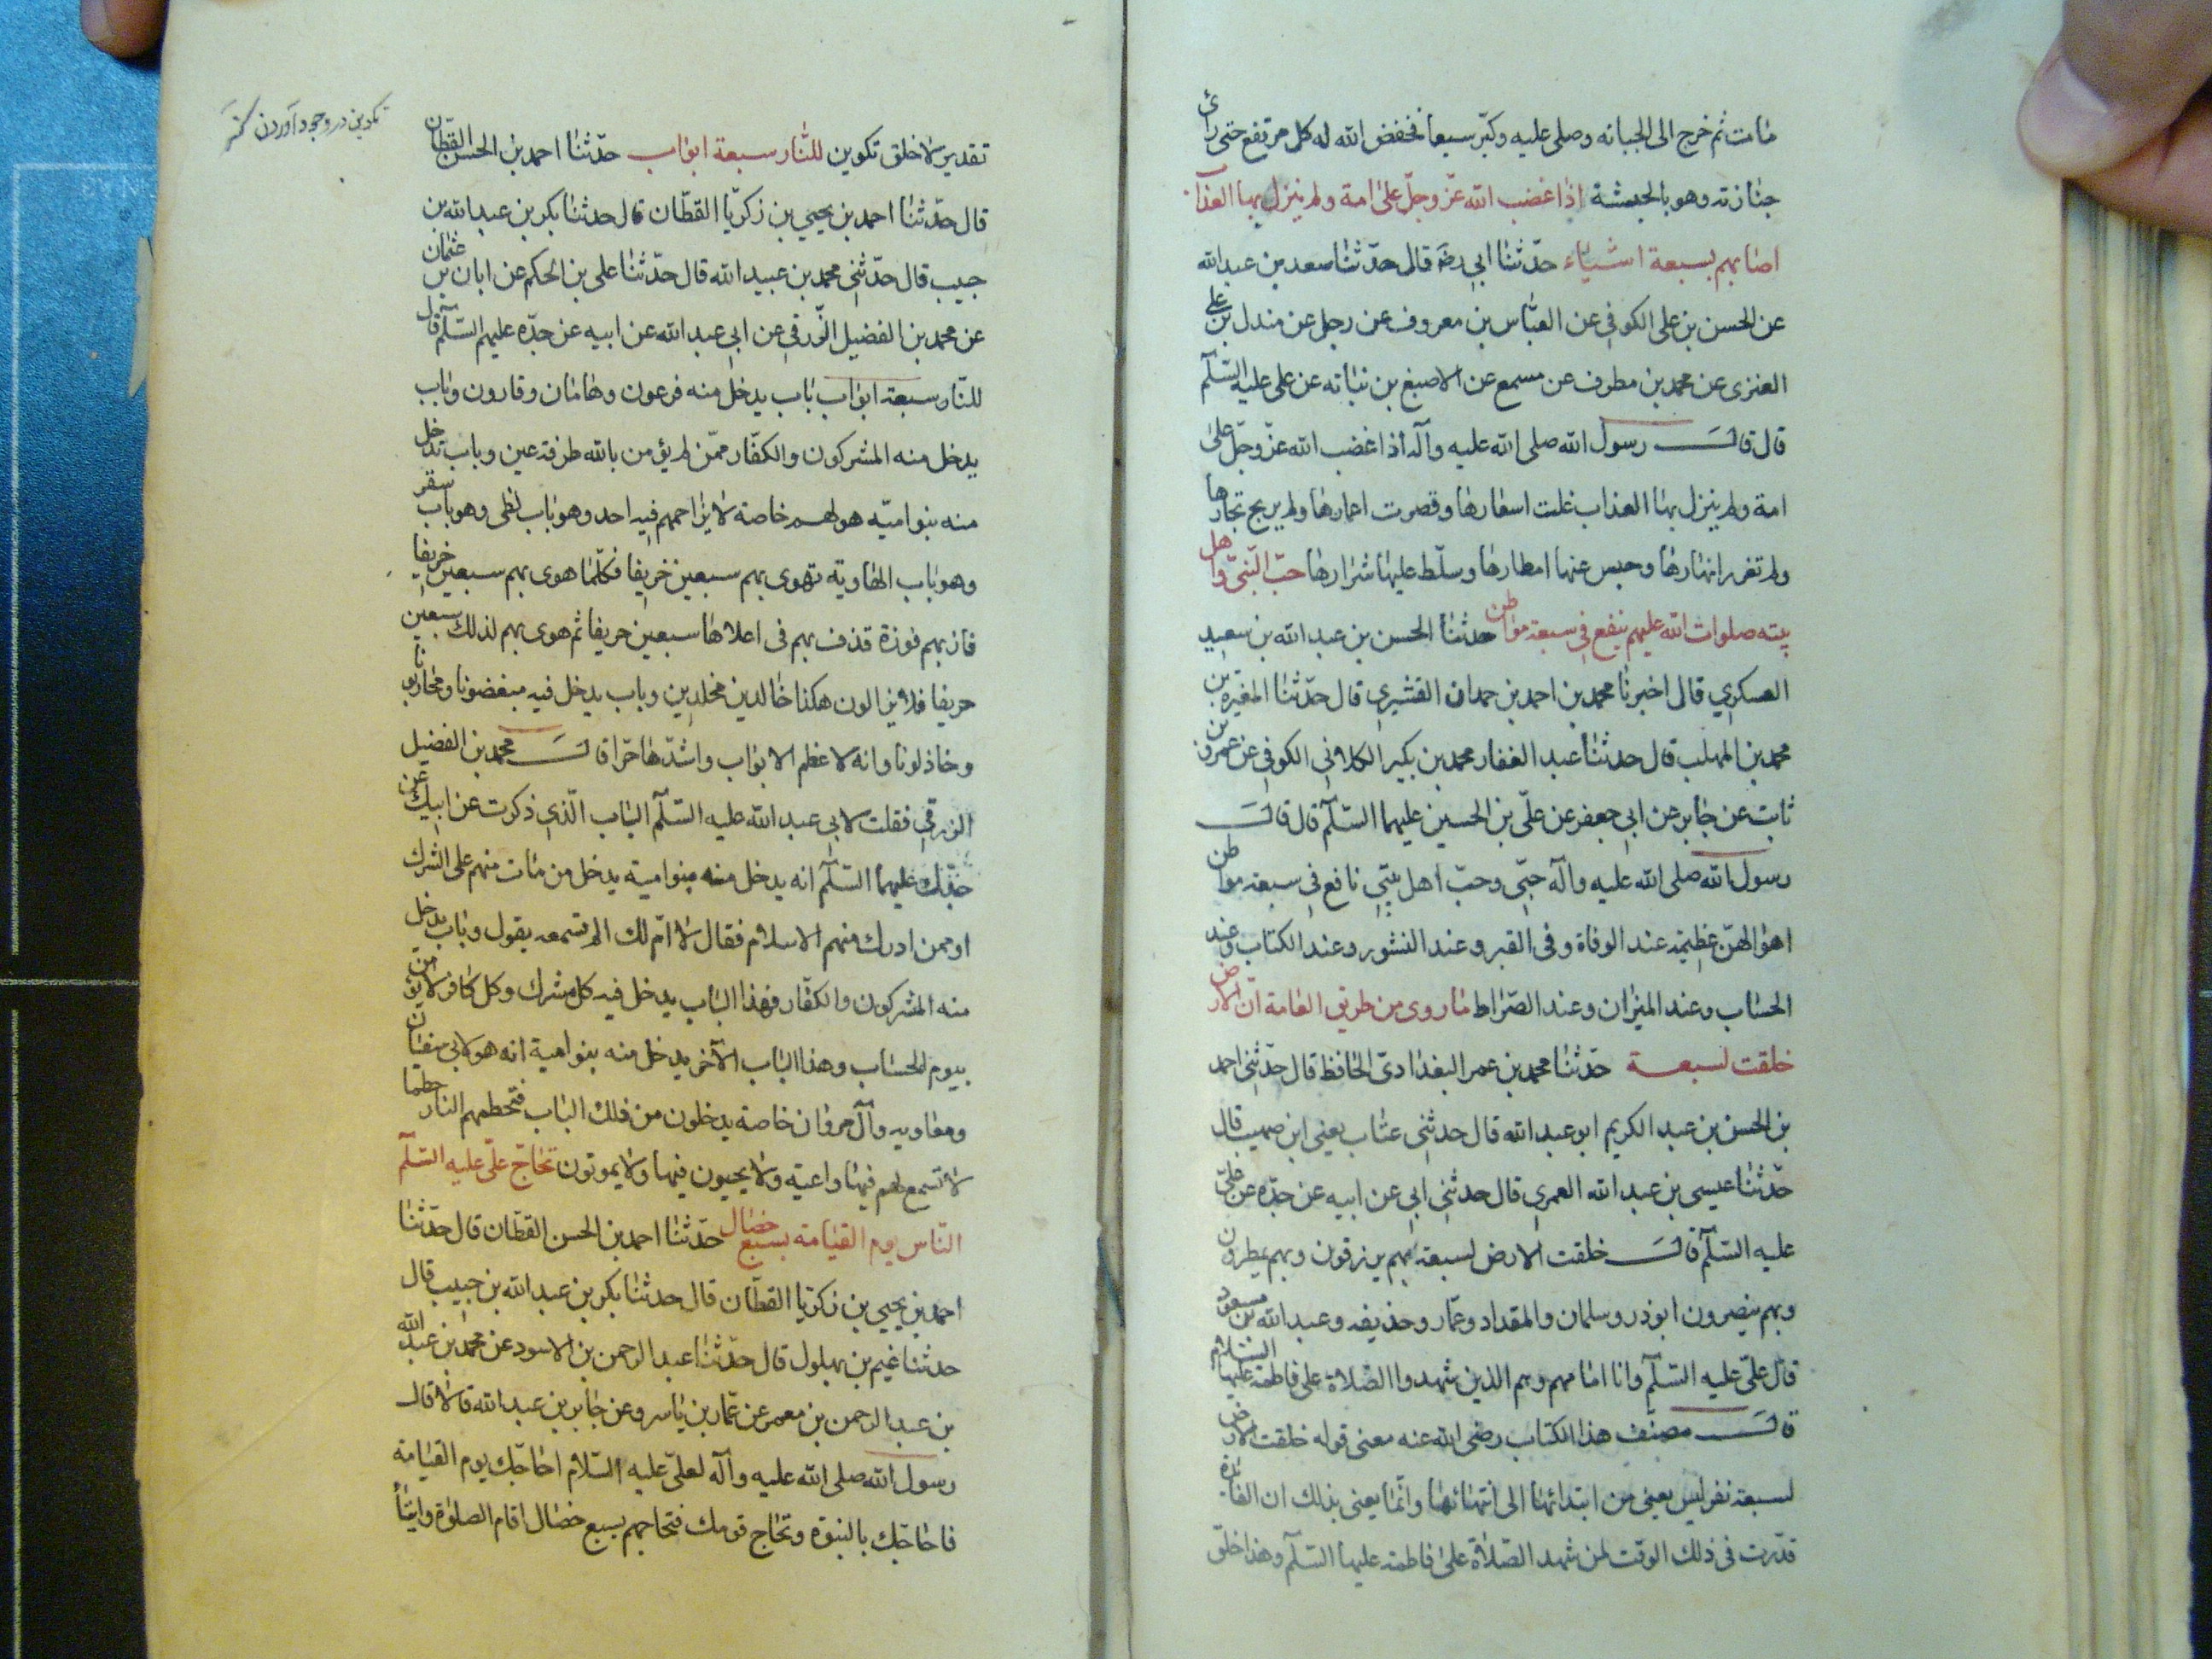 مات ثم خرج الى الجبانه وصلى عليه وكبّر سبعا فخفض الله له كل مرتفع حتى رأى
جنازته وهو بالحبشة اذا غضب الله عزّ وجلّ على امة ولم ينزل بها العذاب
اصابهم بسبعة اشياء حدّثنا ابى رضه قال حدّثنا سعد بن عبد الله
عن الحسن بن على الكوفى عن العبّاس بن معروف عن رجل عن مندل بن على
العنزى عن محمد بن مطرف عن مسمع عن الاصبغ بن نباته عن على عليه السّلم
قال قال رسول الله صلى الله عليه وآله اذا غضب الله عزّ وجلّ على
امة ولم ينزل بها العذاب غلت اسعارها وقصرت اعمارها ولم يربح تجارها
ولم تغرر انهارها وحبس عنها امطارها وسلّط عليها شرارها حبّ النّبىّ واهل
بيته صلوات الله عليهم ينفع فى سبعة مواطن حدثنا الحسن بن عبد الله بن سعيد
العسكرى قال اخبرنا محمد بن احمد بن حمدان القشيرى قال حدّثنا المغيرة بن
محمد بن المهلب قال حدثنا عبد الغفار محمد بن بكير الكلانى الكوفى عن عمرو بن
ثابت عن جابر عن ابى جعفر عن علّى بن الحسين عليهما السّلم قال قال
رسول الله صلى الله عليه وآله حبّى وحبّ اهل بيتى نافع فى سبعة مواطن
اهوالهنّ عظيمة عند الوفاة وفى القبر وعند النشور وعند الكتاب وعند
الحساب وعند الميزان وعند الصّراط ما روى من طريق العامة انّ الارض
خلقت لسبعة حدّثنا محمد بن عمر البغدادىّ الحافظ قال حدّثنى احمد
بن الحسن بن عبد الكريم ابو عبد الله قال حدثنى عتاب يعنى ابن صهيب قال
حدّثنا عيسى بن عبد الله العمرى قال حدثنى ابى عن ابيه عن جدّه عن علىّ
عليه السّلم قال خلقت الارض لسبعة بهم يرزقون وبهم يمطرون
وبهم ينصرون ابو ذر وسلمان والمقداد وعمّار وحذيفه وعبد الله بن مسعود
قال علىّ عليه السّلم وانا امامهم وهم الذين شهدوا الصّلاة على فاطمة عليها السّلام
قال مصنّف هذا الكتاب رضى الله عنه معنى قوله خلقت الارض
لسبعة نفر ليس يعنى من ابتدائها الى انتهائها وانّما يعنى بذلك ان الفائدة
قدّرت فى ذلك الوقت لمن شهد الصّلاة على فاطمة عليها السّلم وهذا خلق
تقدير لا خلق تكوين للنّار سبعة ابواب حدّثنا احمد بن الحسن القطّان
قال حدّثنا احمد بن يحيى بن زكريّا القطّان قال حدثنا بكر بن عبد الله بن
حبيب قال حدّثنى محمد بن عبيد الله قال حدّثنا على بن الحكم عن ابان بن عثمان
عن محمد بن الفضيل الزّرقى عن ابى عبد الله عن ابيه عن جدّه عليهم السّلم قال
للنّار سبعة ابواب باب يدخل منه فرعون وهامان وقارون وباب
يدخل منه المشركون والكفّار ممّن لم يؤمن بالله طرفة عين وباب تدخل
منه بنو اميّه هو لهم خاصة لا يزاحمهم فيه احد وهو باب لظى وهو باب سقر
وهو باب الهاوية تهوى بهم سبعين خريفا فكلّما هوى بهم سبعين خريفا
فار بهم فورة قذف بهم فى اعلاها سبعين خريفا ثم هوى بهم لذلك سبعين
خريفا فلا يزالون هكذا خالدين مخلدين وباب يدخل فيه مبغضونا ومحاربونا
وخاذلونا وانه لاعظم الابواب واشدّها حرّا قال محمد بن الفضيل
الزرقى فقلت لابى عبد الله عليه السّلم الباب الّذى ذكرت عن ابيك عن
جدّك عليهما السّلم انه يدخل منه بنو امية يدخل من مات منهم على الشرك
او ممن ادرك منهم الاسلام فقال لا امّ لك الم تسمعه يقول وباب يدخل
منه المشركون والكفّار فهذا الباب يدخل فيه كل مشرك وكل كافر لا يؤمن
بيوم الحساب وهذا الباب الآخر يدخل منه بنو امية انه هو لابى سفيان
ومعاويه وآل مروان خاصة يدخلون من ذلك الباب فتحطمهم النار حطما
لا تسمع لهم فيها واعية ولا يحيون فيها ولا يموتون تحاجّ علّى عليه السّلم
النّاس يوم القيامة بسبع خصال حدّثنا احمد بن الحسن القطّان قال حدّثنا
احمد بن يحيى بن زكريّا القطّان قال حدثنا بكر بن عبد الله بن حبيب قال
حدثنا تميم بن بهلول قال حدّثنا عبد الرحمن بن الاسود عن محمد بن عبد الله
بن عبد الرحمن بن معمر عن عمّار بن ياسر وعن جابر بن عبد الله قالا قال
رسول الله صلى الله عليه وآله لعلىّ عليه السّلام احاجّك يوم القيامة
فاحاجّك بالنبوّة وتحاج قومك فتحاجهم بسبع خصال اقام الصلوة وايتاء
تكوين در وجود آوردن